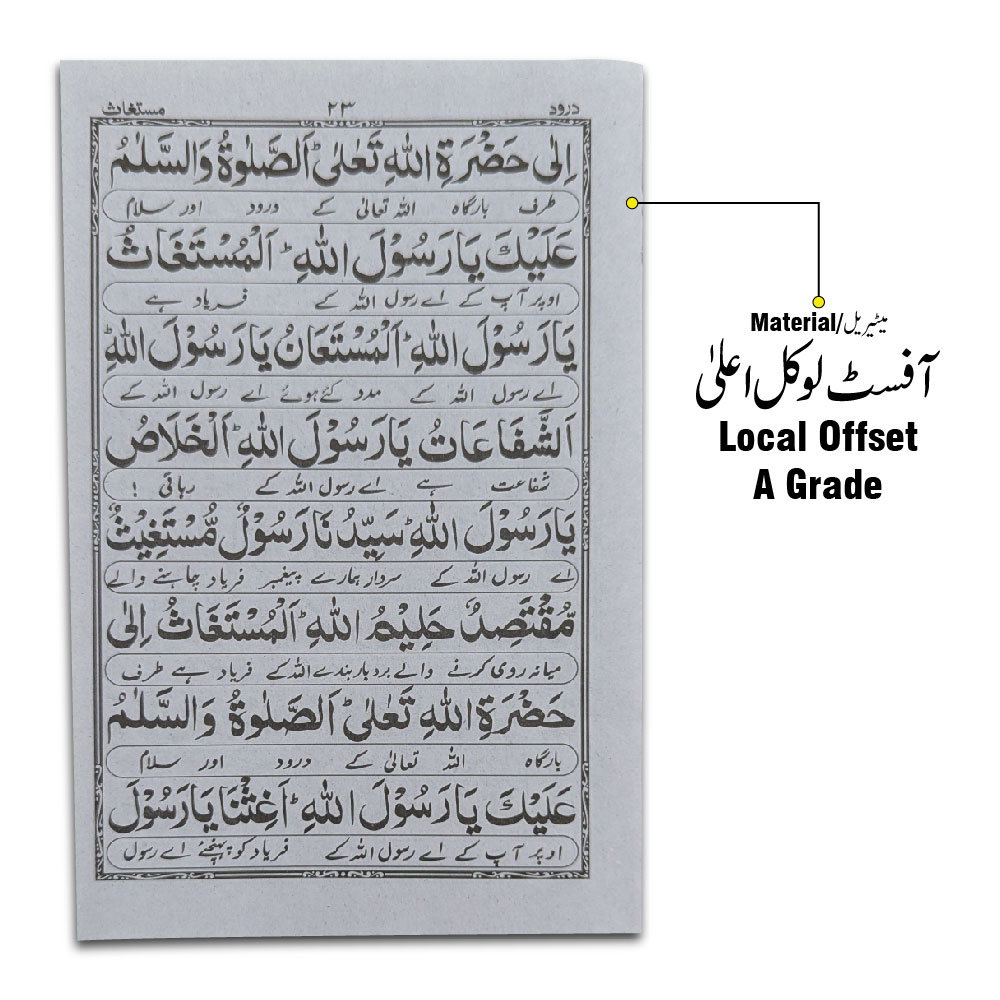 درود ۲۳ مستغاث
اِلٰى حَضْرَةِ اللّٰهِ تَعَالٰىؕ اَلصَّلٰوةُ وَالسَّلَامُ
طرف بارگاہ اللہ تعالیٰ کے درود اور سلام
عَلَيْكَ يَا رَسُوْلَ اللّٰهِؕ اَلْمُسْتَغَاثُ
اوپر آپ کے اے رسول اللہ کے فریاد ہے
يَا رَسُوْلَ اللّٰهِؕ اَلْمُسْتَعَانُ يَا رَسُوْلَ اللّٰهِؕ
اے رسول اللہ کے مدد کئے ہوئے اے رسول اللہ کے
اَلشَّفَاعَاتُ يَا رَسُوْلَ اللّٰهِؕ اَلْخَلَاصُ
شفاعت ہے اے رسول اللہ کے رہائی !
يَا رَسُوْلَ اللّٰهِؕ سَيِّدُ نَا رَسُوْلٌ مُّسْتَغِيْثٌ
اے رسول اللہ کے سردار ہمارے پیغمبر فریاد چاہنے والے
مُّقْتَصِدٌ حَلِيْمُ اللّٰهِؕ اَلْمُسْتَغَاثُ اِلٰى
میانہ روی کرنے والے بردبار بندے اللہ کے فریاد ہے طرف
حَضْرَةِ اللّٰهِ تَعَالٰىؕ اَلصَّلٰوةُ وَالسَّلَامُ
بارگاہ اللہ تعالیٰ کے درود اور سلام
عَلَيْكَ يَا رَسُوْلَ اللّٰهِؕ اَغِثْنَا يَا رَسُوْلَ
اوپر آپ کے اے رسول اللہ کے فریاد کو پہنچئے اے رسول
Material/میٹیریل
آفسٹ لوکل اعلیٰ
Local Offset
A Grade